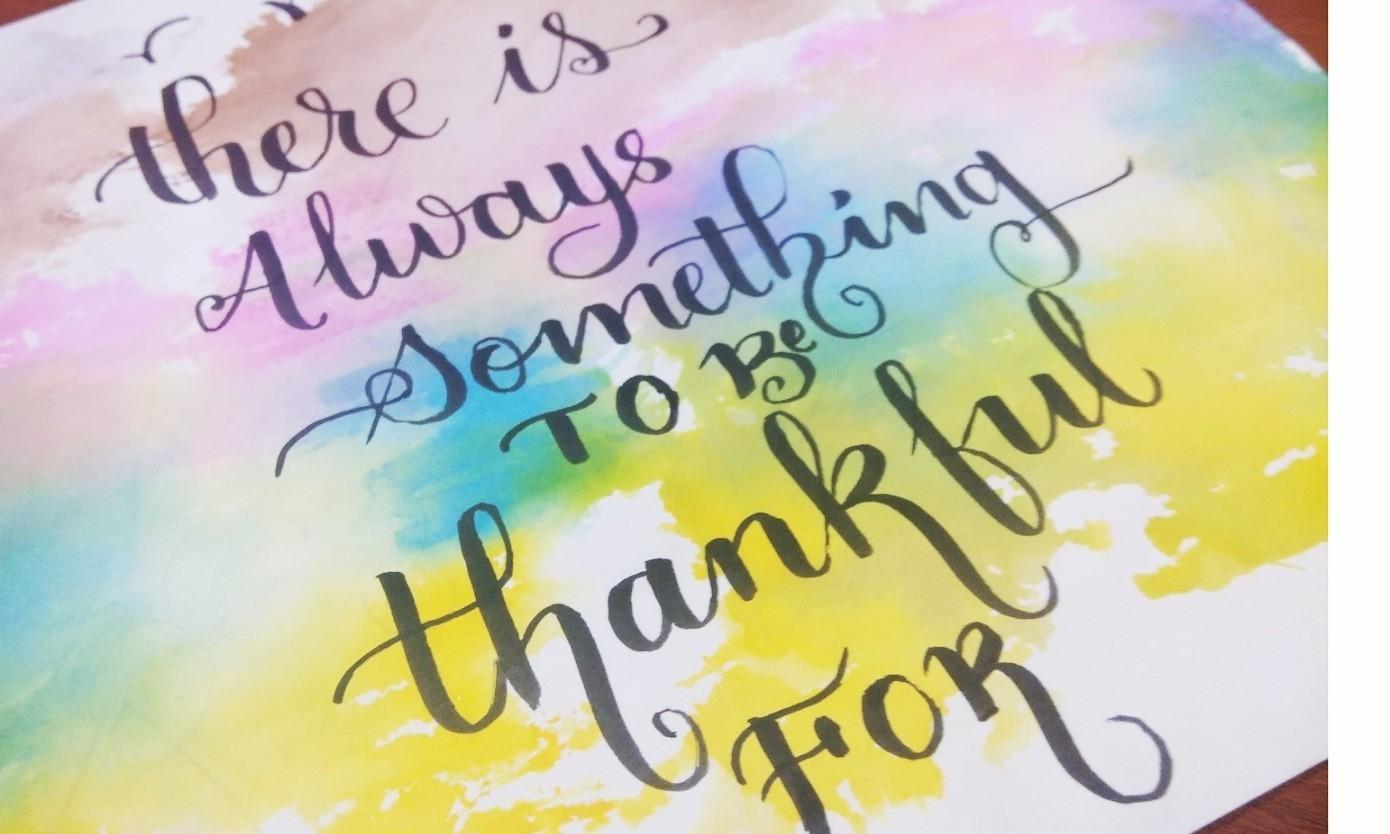 there is
Always
something
TO Be
thankful
FOR